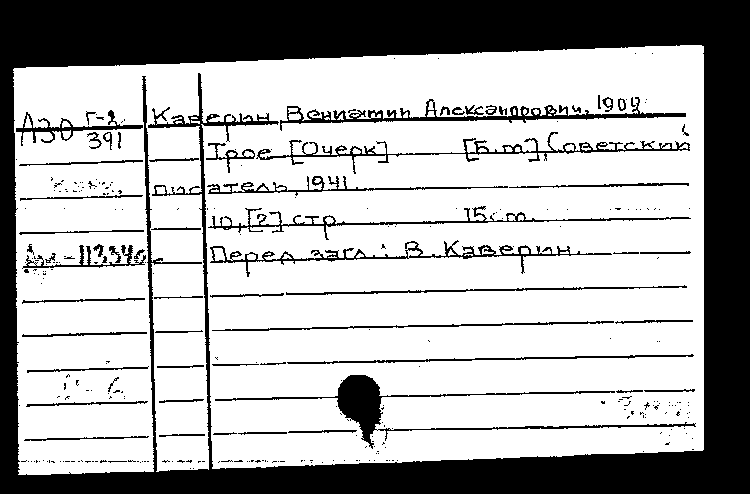 АЗО Г-2/391 Каверин, Вениамин Александрович, 1902
Трое [Очерк] [Б.m], Советский
писатель, 1941.
10, [2] стр. 15cm.
Перед загл.: В. Каверин.